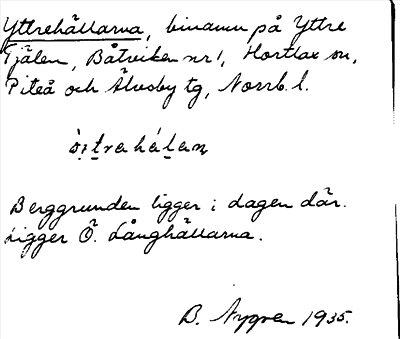 Yttrehällarna, binamn på Yttre
Fjälen, Båtviken nr 1, Hortlax sn,
Piteå och Älvsby tg, Norrb. l.
Berggrunden ligger i dagen där.
Ligger Ö. Långhällarna.
B. Nygren 1935.